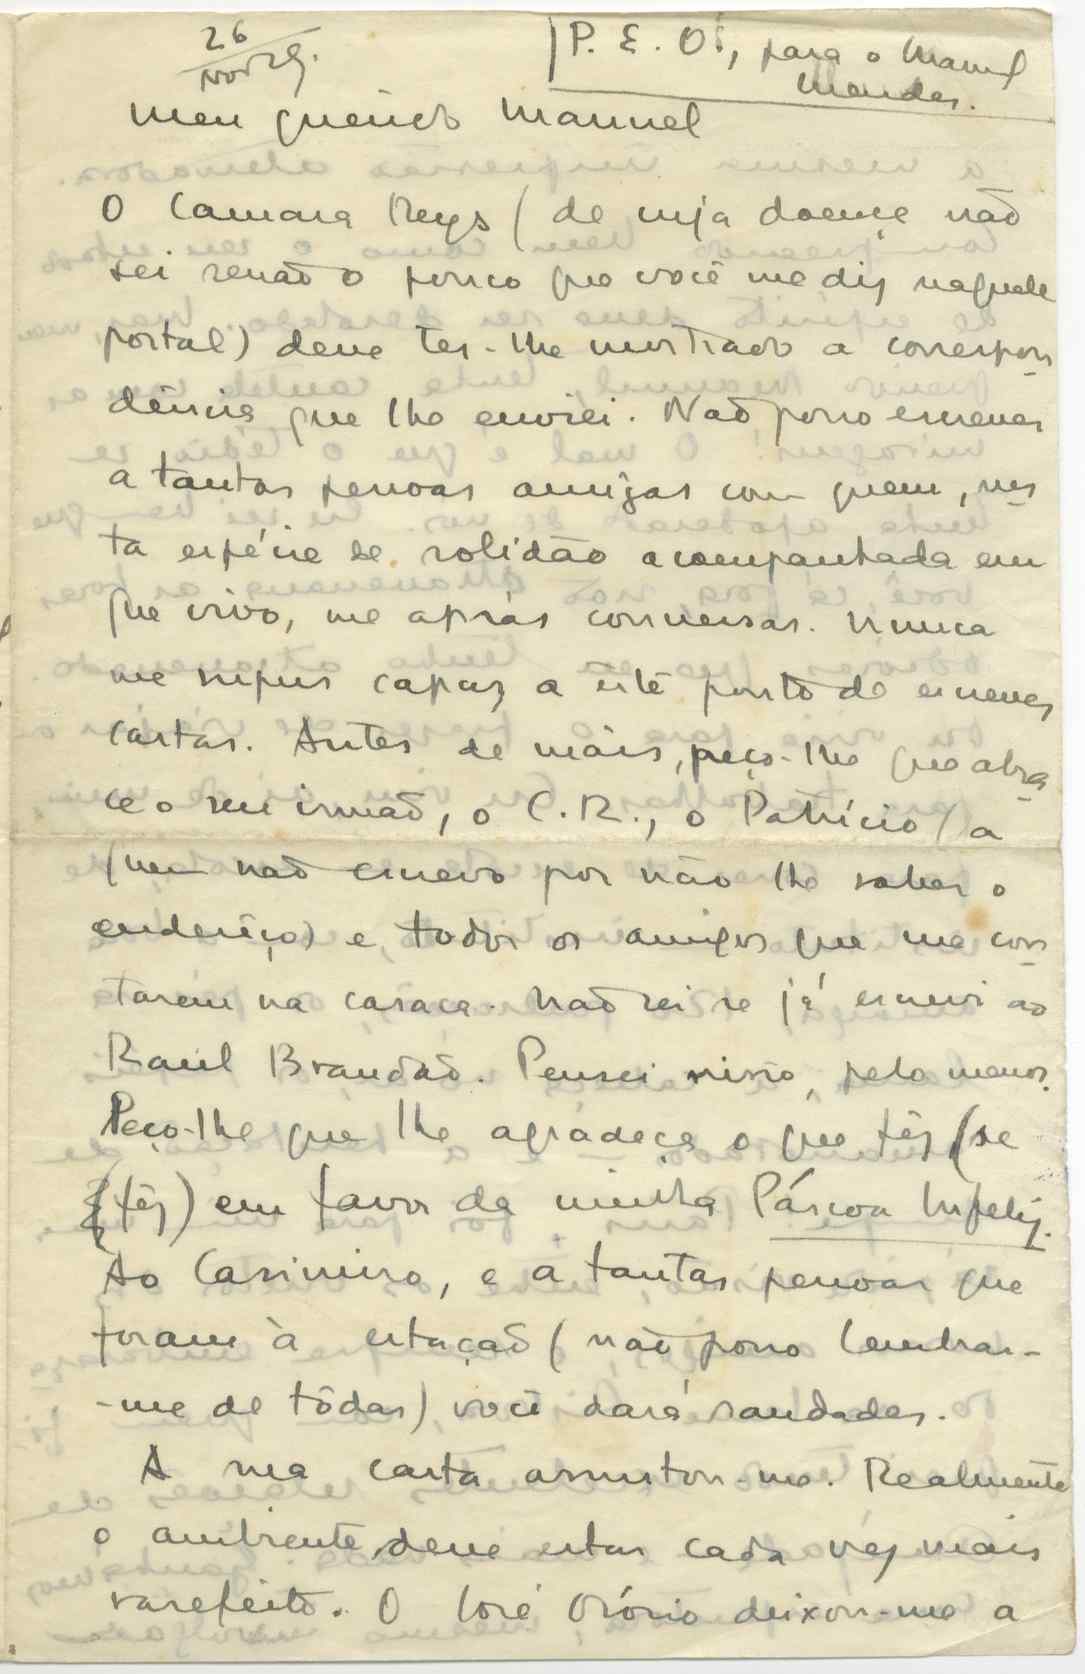 26
nov 29.
P. E. O., para o Manuel
Mendes.
Meu querido Manuel
O Camara Reys (de cuja doença não
sei senão o pouco que você me diz naquele
postal) deve ter-lhe mostrado a correspon
dência que lhe enviei. Não posso escrever
a tantas pessoas amigas com quem, nes
ta espécie de solidão acompanhada em
que vivo, me apraz conversar. Nunca
me supus capaz a êste ponto de escrever
cartas. Antes de máis, peço-lhe que abra
ce o seu irmão, o C. R., o Patrício (a
quem não escrevo por não lhe saber o
enderêço) e todos os amigos que me cor
tarem na casaca. Não sei se já escrevi ao
Raul Brandão. Pensei nisso, pelo menos.
Peço-lhe que lhe agradeça o que fêz (se
fêz) em favor da minha Páscoa Infeliz.
Ao Casimiro, e a tantas pessoas que
foram à estação (não posso lembrar-
-me de tôdas) você dará saudades.
A sua carta assustou-me. Realmente
o ambiente deve estar cada vez máis
rarefeito. O José Osório deixou-me a